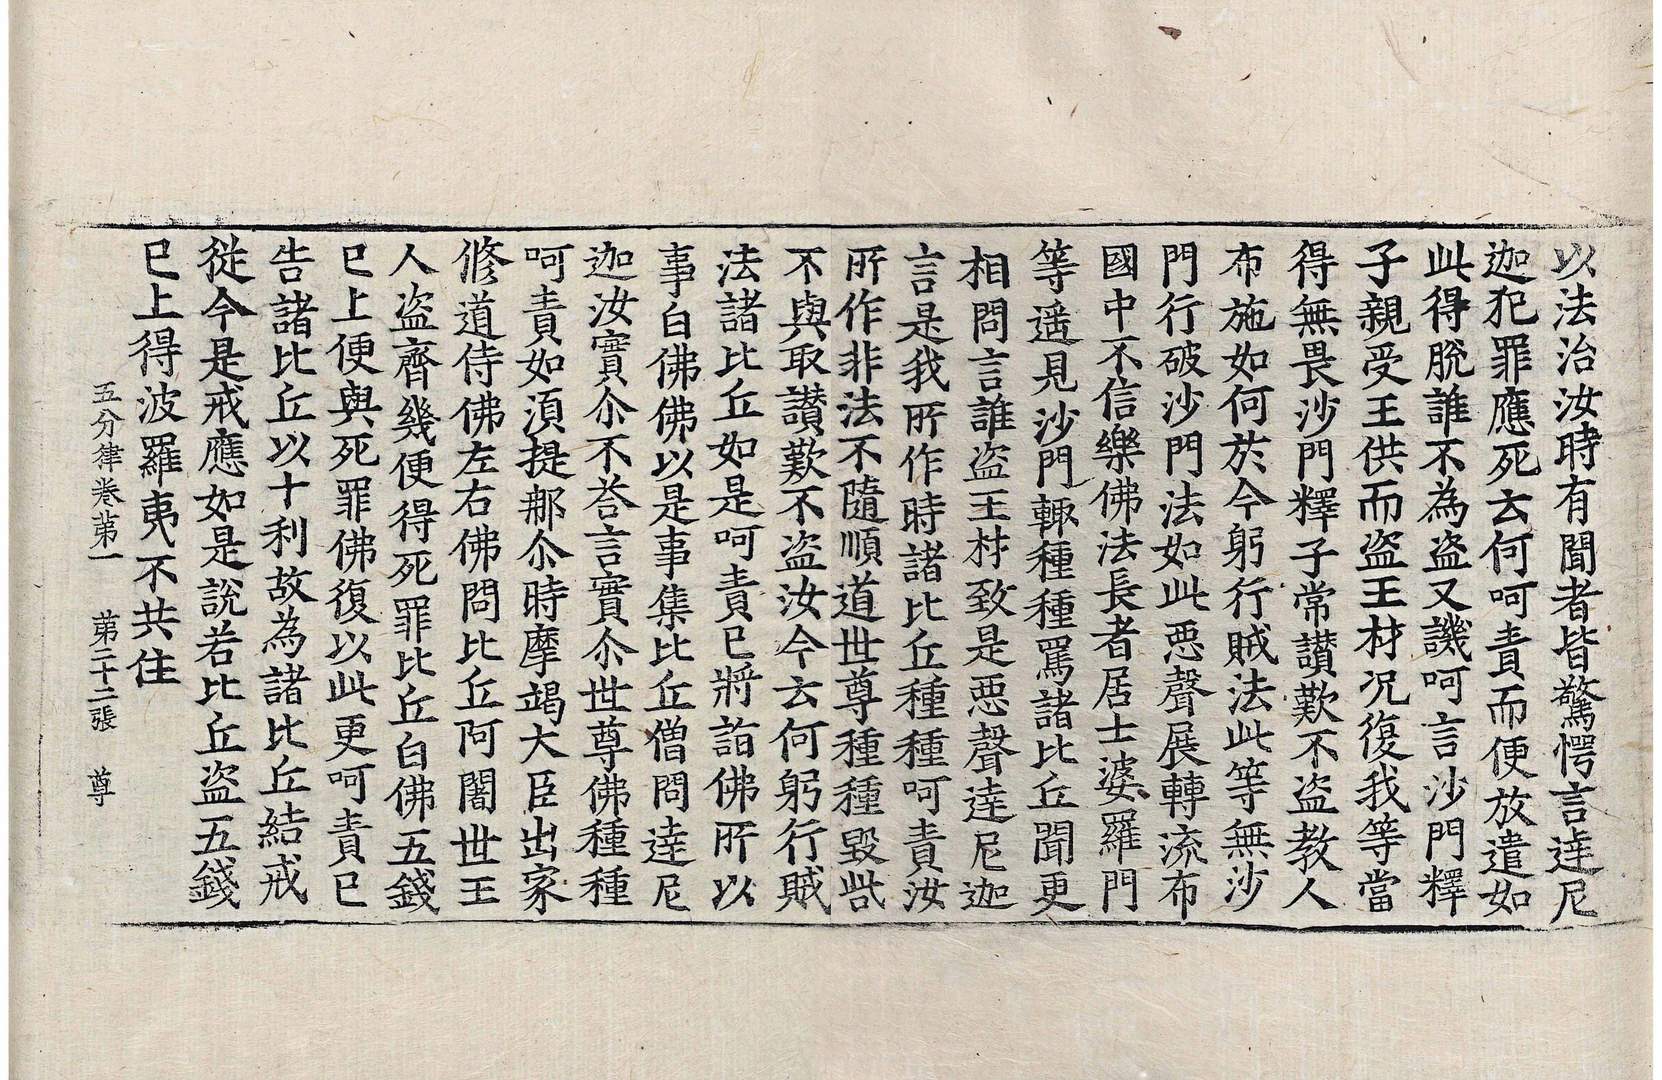 以法治汝時有聞者皆驚愕言達尼
迦犯罪應死云何呵責而便放遣如
此得脫誰不為盜又譏呵言沙門釋
子親受王供而盜王材況復我等當
得無畏沙門釋子常讚歎不盜教人
布施如何於今躬行賊法此等無沙
門行破沙門法如此惡聲展轉流布
國中不信樂佛法長者居士婆羅門
等遥見沙門輙種種罵諸比丘聞更
相問言誰盜王材致是惡聲達尼迦
言是我所作時諸比丘種種呵責汝
所作非法不隨順道世尊種種毀呰
不與取讃歎不盜汝今云何躬行賊
法諸比丘如是呵責已將詣佛所以
事白佛佛以是事集比丘僧問達尼
迦汝實尒不荅言實尒世尊佛種種
呵責如須提那尒時摩竭大臣出家
修道侍佛左右佛問比丘阿闍世王
人盜齊幾便得死罪比丘白佛五錢
已上便與死罪佛復以此更呵責已
告諸比丘以十利故為諸比丘結戒
從今是戒應如是說若比丘盜五錢
已上得波羅夷不共住
五分律卷苐一 苐二十二張 尊